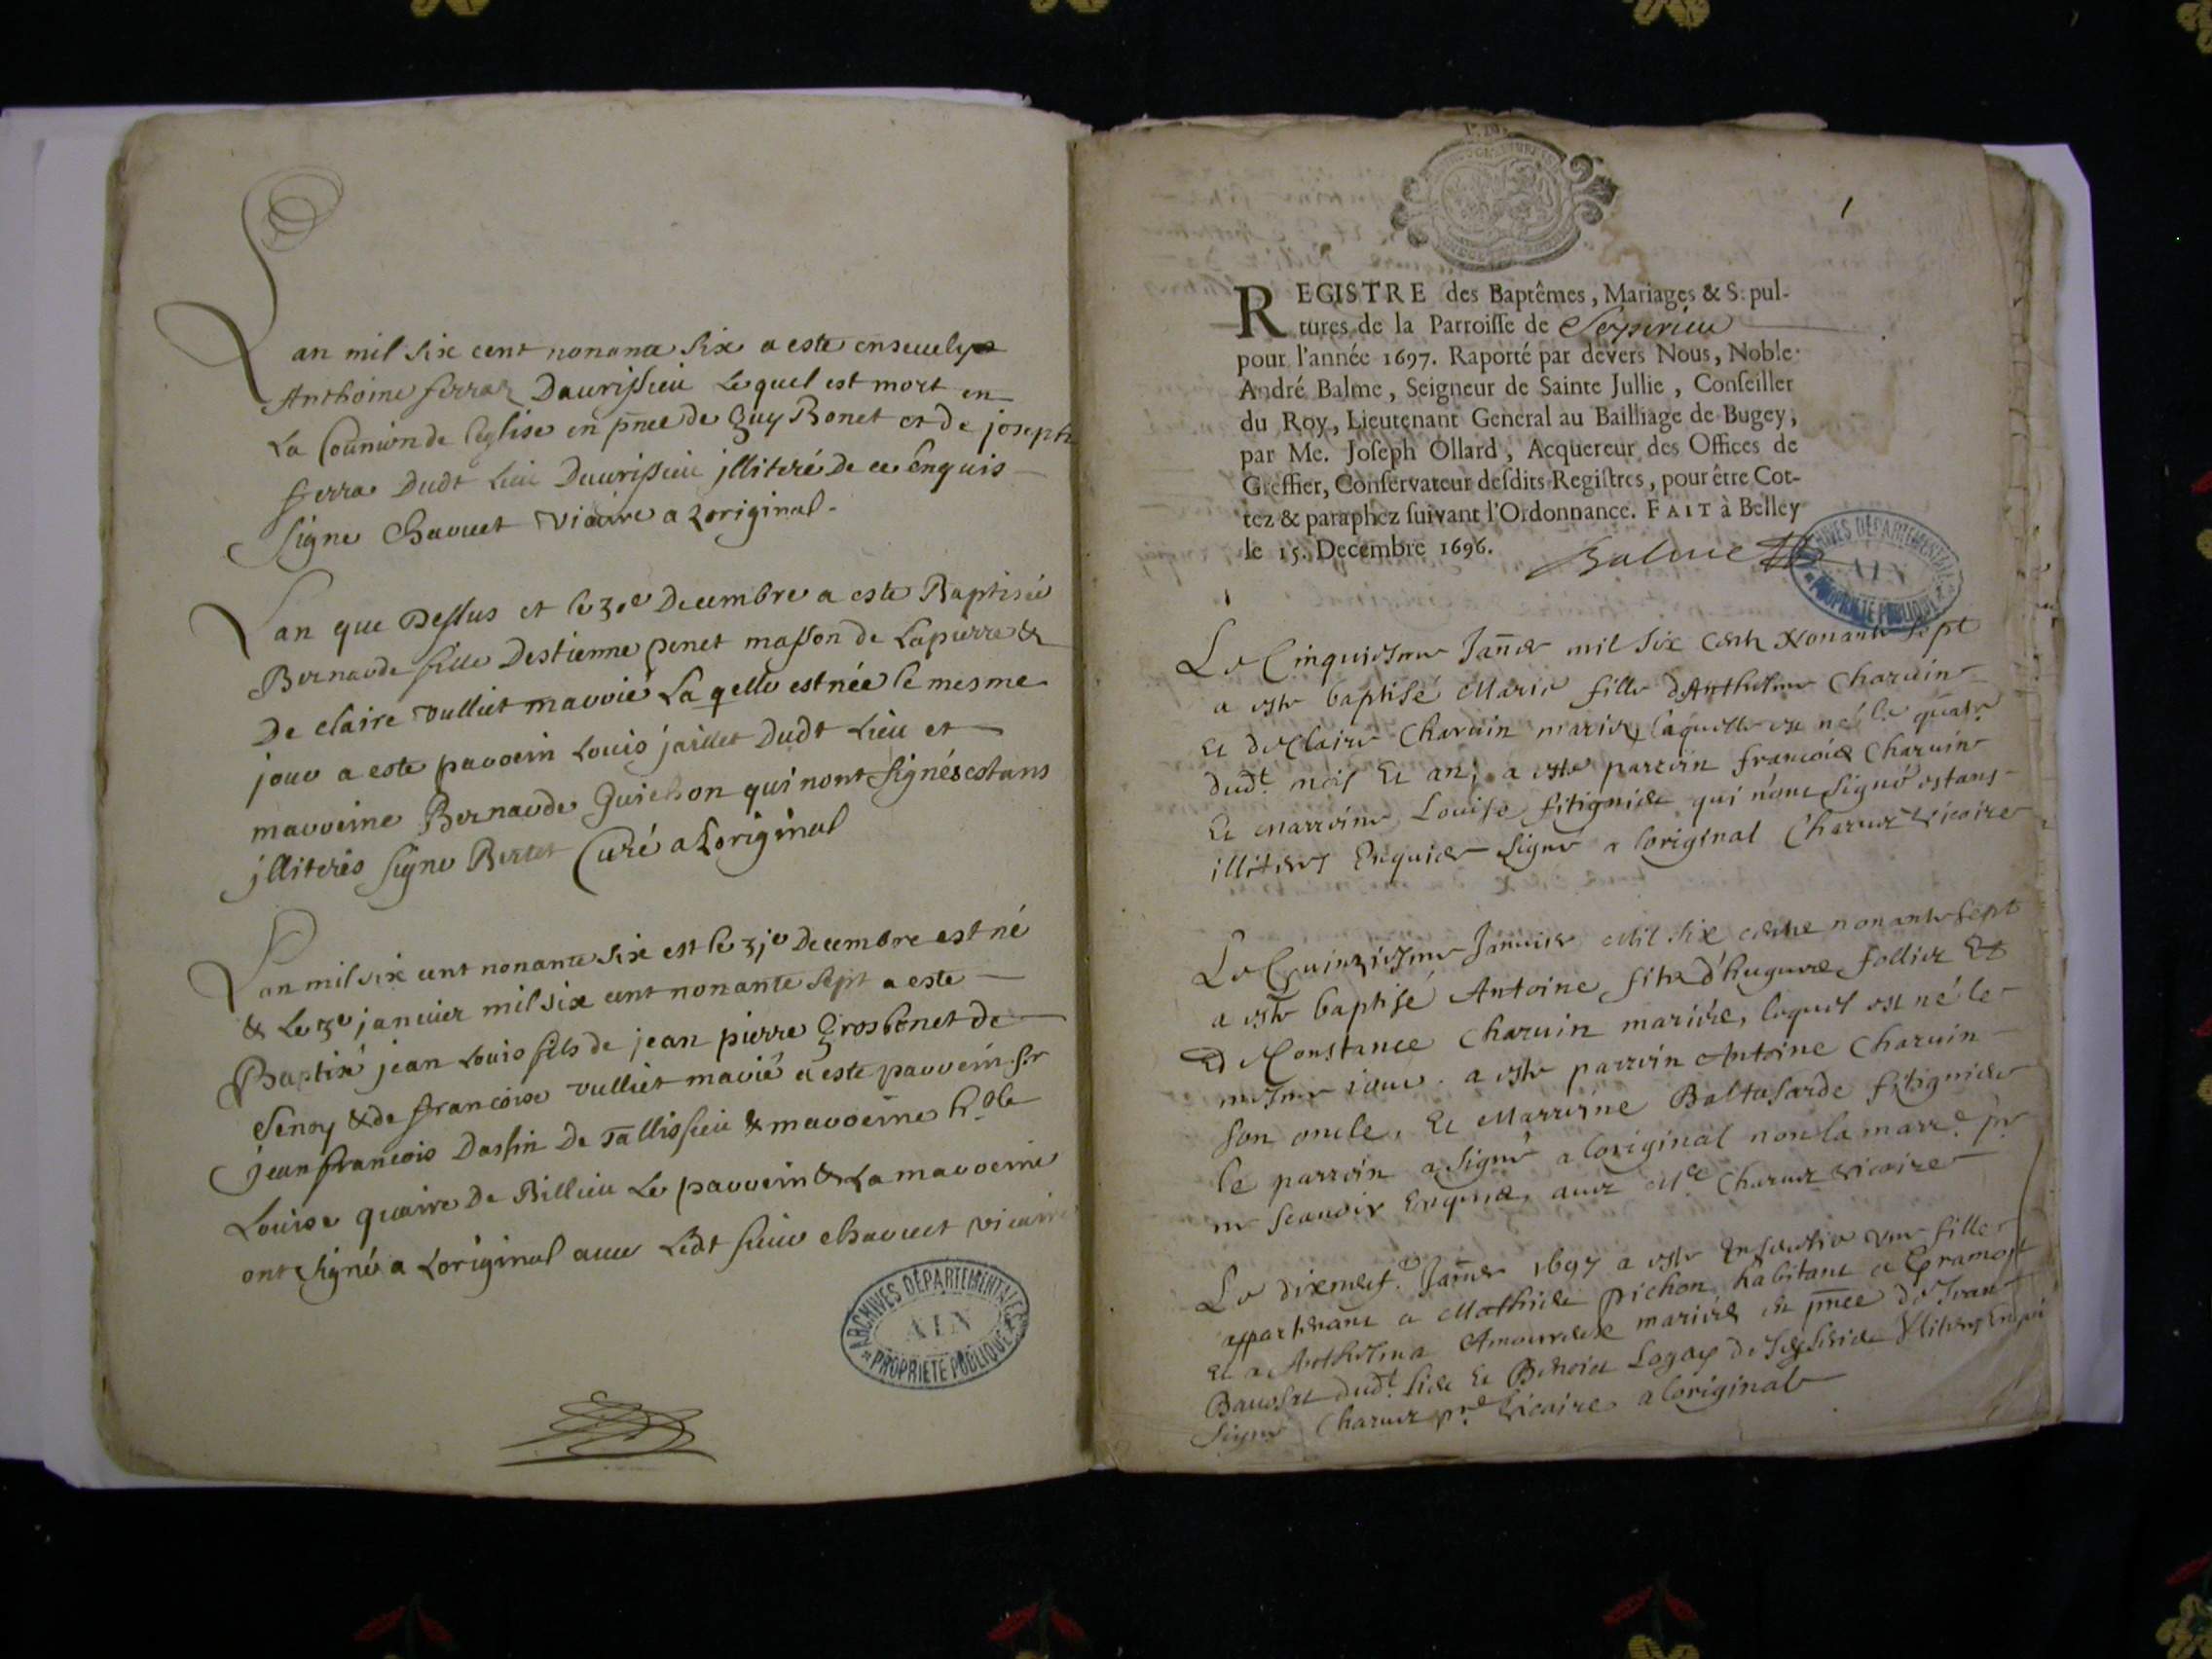 Lan mil six cent nonante six a esté enseuely
Anthoine ferraz Daurissieu Lequel est mort en
La Coûnion de leglise en pñce de Guy Bonet et de joseph
ferra dudt lieu Daurissieu jlliteré de ce enquis
signe Charuet Vicaire a Loriginal.
Lan que Dessus et le 30e Decembre a esté Baptisée
Bernarde fille Destienne penet masson de Lapierre &
De claire vulliet marié La qelle est née le mesme
jour a este parrein Louis jaillet dudt Lieu et
marreine Bernarde Guichon qui nont signés estans
jlliteres signe Bertet Curé a Loriginal
Lan mil six cent nonante six est le 31e Decembre est né
& Le 3e januier mil six cent nonante sept a este
Baptisé jean Louis fils de jean pierre Grosbonet de
Senoy & de francoise vulliet marié a este parrein Sr
jean francois Dassin De Tallissieu & marreine h. ble
Louise quaire De Billieu Le parrein & La marreine
ont signé a Loriginal auec Ledt sieur charuet vicaire
ARCHIVES DÉPARTEMENTALES
AIN
PROPRIÉTÉ PUBLIQUE
1
REGISTRE des Baptêmes, Mariages & Sepul-
tures de la Parroisse de Seyserieu
pour l'année 1697. Raporté par devers Nous, Noble
André Balme, Seigneur de Sainte Jullie, Conseiller
du Roy, Lieutenant General au Bailliage de Bugey,
par Me. Joseph Ollard, Acquereur des Offices de
Greffier, Conservateur desdits Registres, pour être Cot-
tez & paraphez suivant l'Ordonnance. FAIT à Belley
le 15. Decembre 1696.
Balme
ARCHIVES DÉPARTEMENTALES
AIN
PROPRIÉTÉ PUBLIQUE
1
Le Cinquiesme Jañer mil six cent Nonante sept
a este baptisé Marie fille d'Anthelme Charuin
Et de Claire Charuin mariez, laquelle est né le quatre
dudt. mois Et an, a este parrein francois Charuin
Et Marreine Louise fitignier qui n'ont signé estans
illiteres Enquis signe a loriginal Charuet Vicaire
Le Quinziesme Januier Mil six cent nonante sept
a este baptisé Antoine, fils d'hugues follier Et
de Constance Charuin mariés, lequel est né le
mesme iour. a este parrein Antoine Charuin
son oncle, Et Marreine Baltasarde fitignier
le parrein a signé a loriginal non la marre. pr
ne scauoir Enquise, auec Mre Charuet Vicaire
Le dixneuf. Jañer 1697 a este Enseuelie une fille
appartenant a Mathieu pichon habitant a Gramont
Et a Anthelma mariés en pñce de Jean
dudt. lieu Et Benoit illiteres
signe Charuet pre Vicaire a loriginal